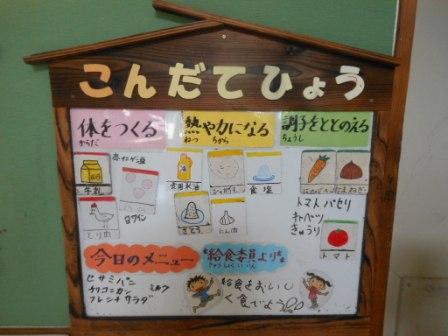 こんだてひょう
体をつくる
からだ
熱や力になる
ねつ ちから
調子をととのえる
ちょうし
牛乳
とり肉
白ワイン
食用米油
じゃがいも
食塩
さとう
にんにく
にんじん
たまねぎ
トマト パセリ
キャベツ
きゅうり
トマト
今日のメニュー
セサミパン ミルク
チリコンカン
フレンチサラダ
給食委員より
きゅうしょくいいん
給食をおいし
く食べよう